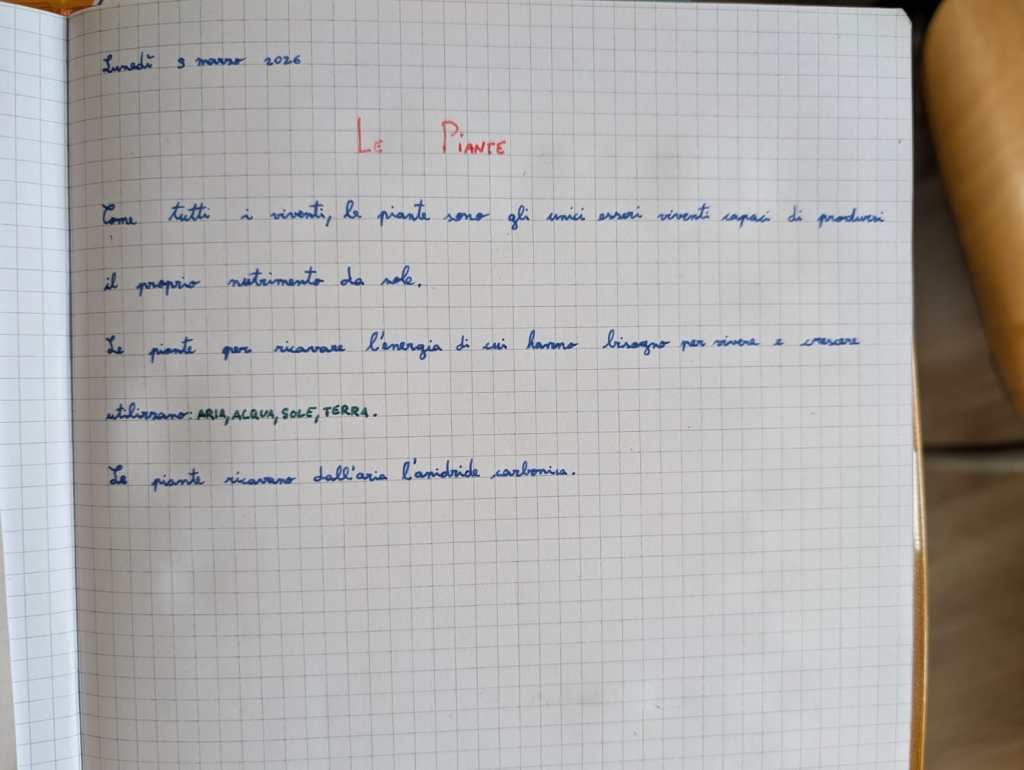 Lunedì 9 marzo 2026
LE PIANTE
Come tutti i viventi, le piante sono gli unici esseri viventi capaci di prodursi
il proprio nutrimento da sole.
Le piante per ricavare l'energia di cui hanno bisogno per vivere e crescere
utilizzano: ARIA, ACQUA, SOLE, TERRA.
Le piante ricavano dall'aria l'anidride carbonica.